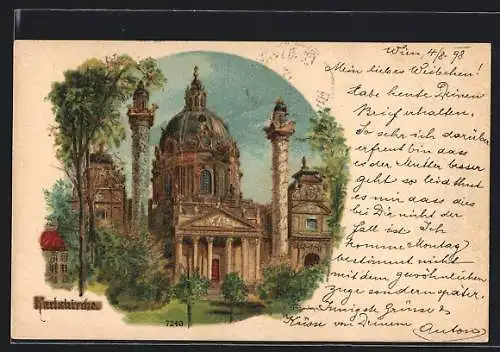 Wien, 4/8. 98
Mein liebes Weibchen!
Habe heute Deinen
Brief erhalten.
So sehr ich darüber
erfreut bin dass
es der Mutter besser
geht so leid thut
es mir dass dies
bei Dir nicht der
Fall ist. Ich
komme Montag
bestimmt nicht
mit dem gewöhnlichen
Zuge sondern später.
Innigste Grüsse &
Küsse von Deinem
Anton
Karlskirche.
7240